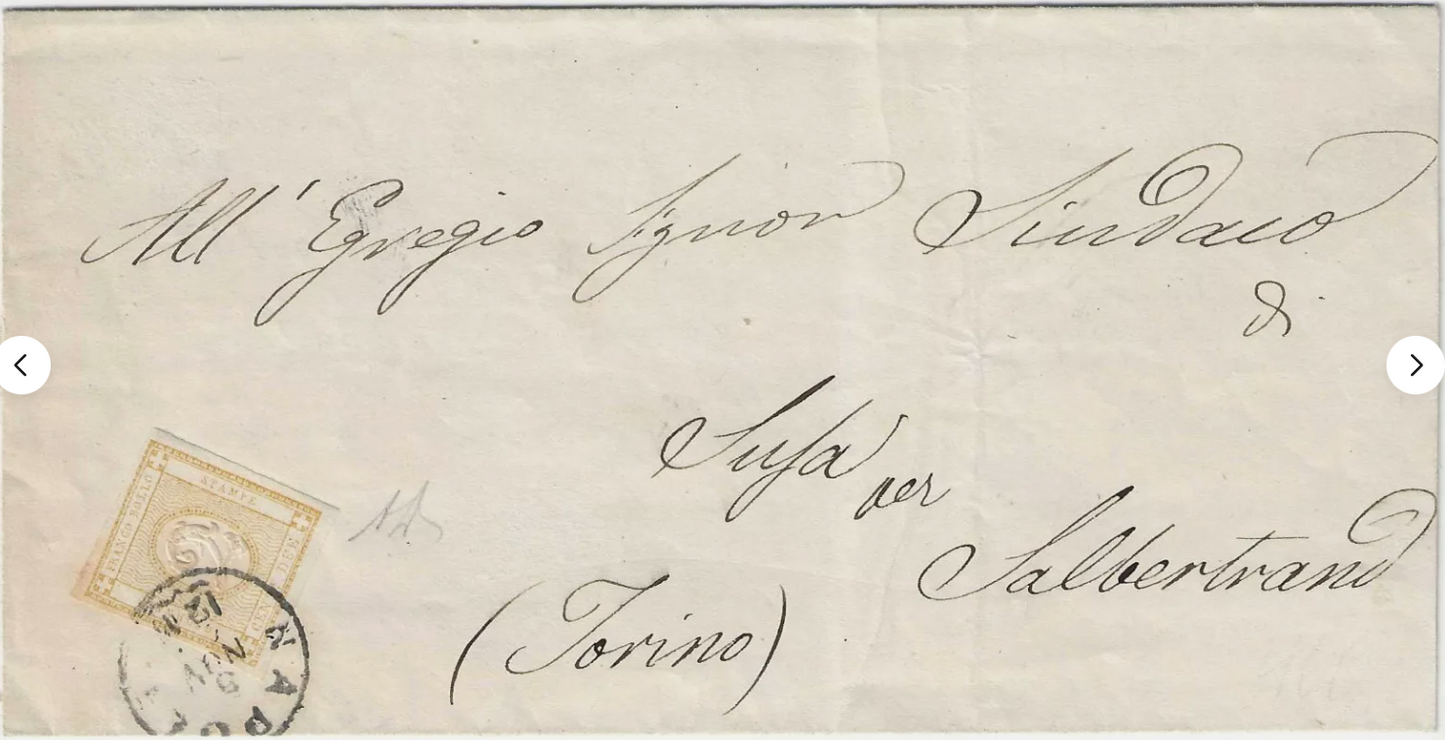 All' Egregio Signor Sindaco
di
Susa per
Salbertrand
(Torino)
FRANCO BOLLO
STAMPE
DUE CEN
NAPO
12
NOV